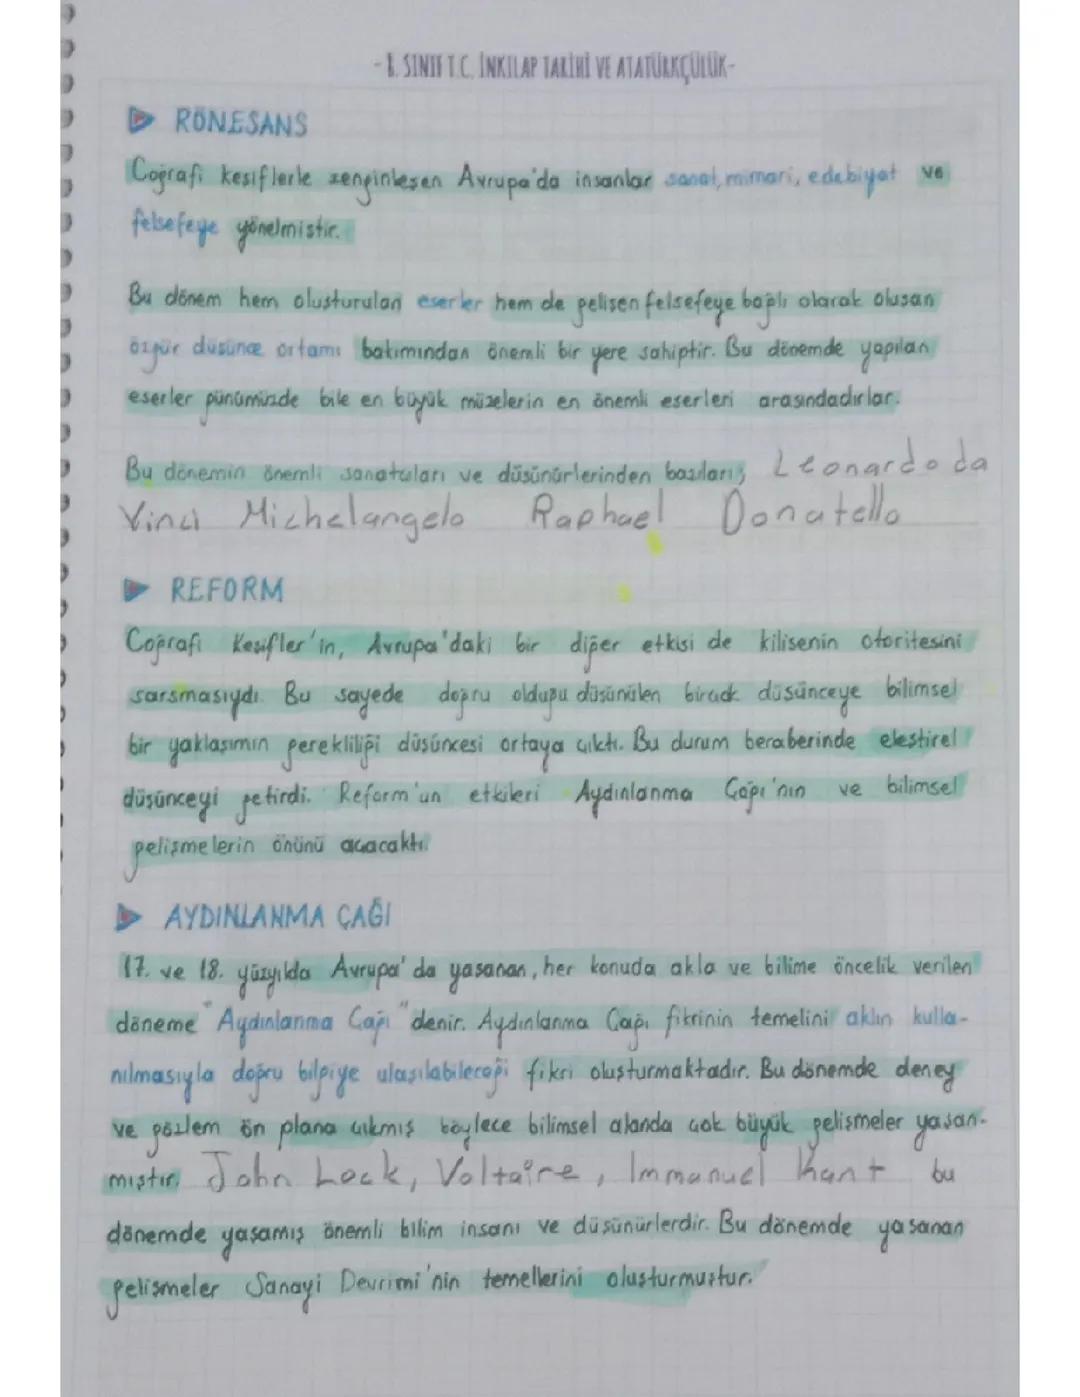 - 8. SINIF T.C. İNKILAP TARİHİ VE ATATÜRKÇÜLÜK-
RÖNESANS
Coğrafi kesiflerle zenginleşen Avrupa'da insanlar sanat, mimari, edebiyat ve
felsefeye yönelmiştir.
Bu dönem hem oluşturulan eserler hem de gelişen felsefeye bağlı olarak oluşan
özgür düşünce ortamı bakımından önemli bir yere sahiptir. Bu dönemde yapılan
eserler günümüzde bile en büyük müzelerin en önemli eserleri arasındadırlar.
Bu dönemin önemli sanatçıları ve düşünürlerinden bazıları; Leonardo da
Vinci Michelangelo Raphael Donatello
REFORM
Coğrafi Keşifler'in, Avrupa'daki bir diğer etkisi de kilisenin otoritesini
sarsmasıydı. Bu sayede doğru olduğu düşünülen birçok düşünceye bilimsel
bir yaklaşımın gerekliliği düşüncesi ortaya çıktı. Bu durum beraberinde eleştirel
düşünceyi getirdi. Reform'un etkileri Aydınlanma Çağı'nın ve bilimsel
gelişmelerin önünü açacaktı.
AYDINLANMA ÇAĞI
17. ve 18. yüzyılda Avrupa'da yaşanan, her konuda akla ve bilime öncelik verilen
döneme "Aydınlanma Çağı" denir. Aydınlanma Çağı fikrinin temelini aklın kulla-
nılmasıyla doğru bilgiye ulaşılabileceği fikri oluşturmaktadır. Bu dönemde deney
ve gözlem ön plana çıkmış böylece bilimsel alanda çok büyük gelişmeler yaşan-
mıştır. John Lock, Voltaire, Immanuel Kant bu
dönemde yaşamış önemli bilim insanı ve düşünürlerdir. Bu dönemde yaşanan
gelişmeler Sanayi Devrimi'nin temellerini oluşturmuştur.